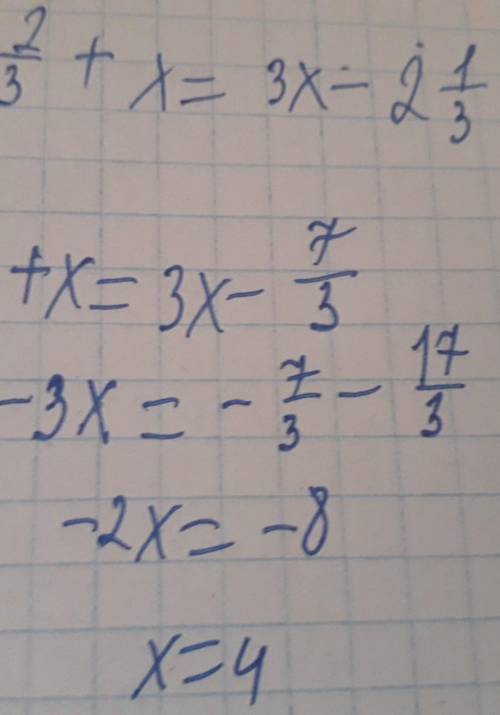 2/3 + x = 3x - 2 1/3
+x = 3x - 7/3
-3x = - 7/3 - 17/3
-2x = -8
x = 4